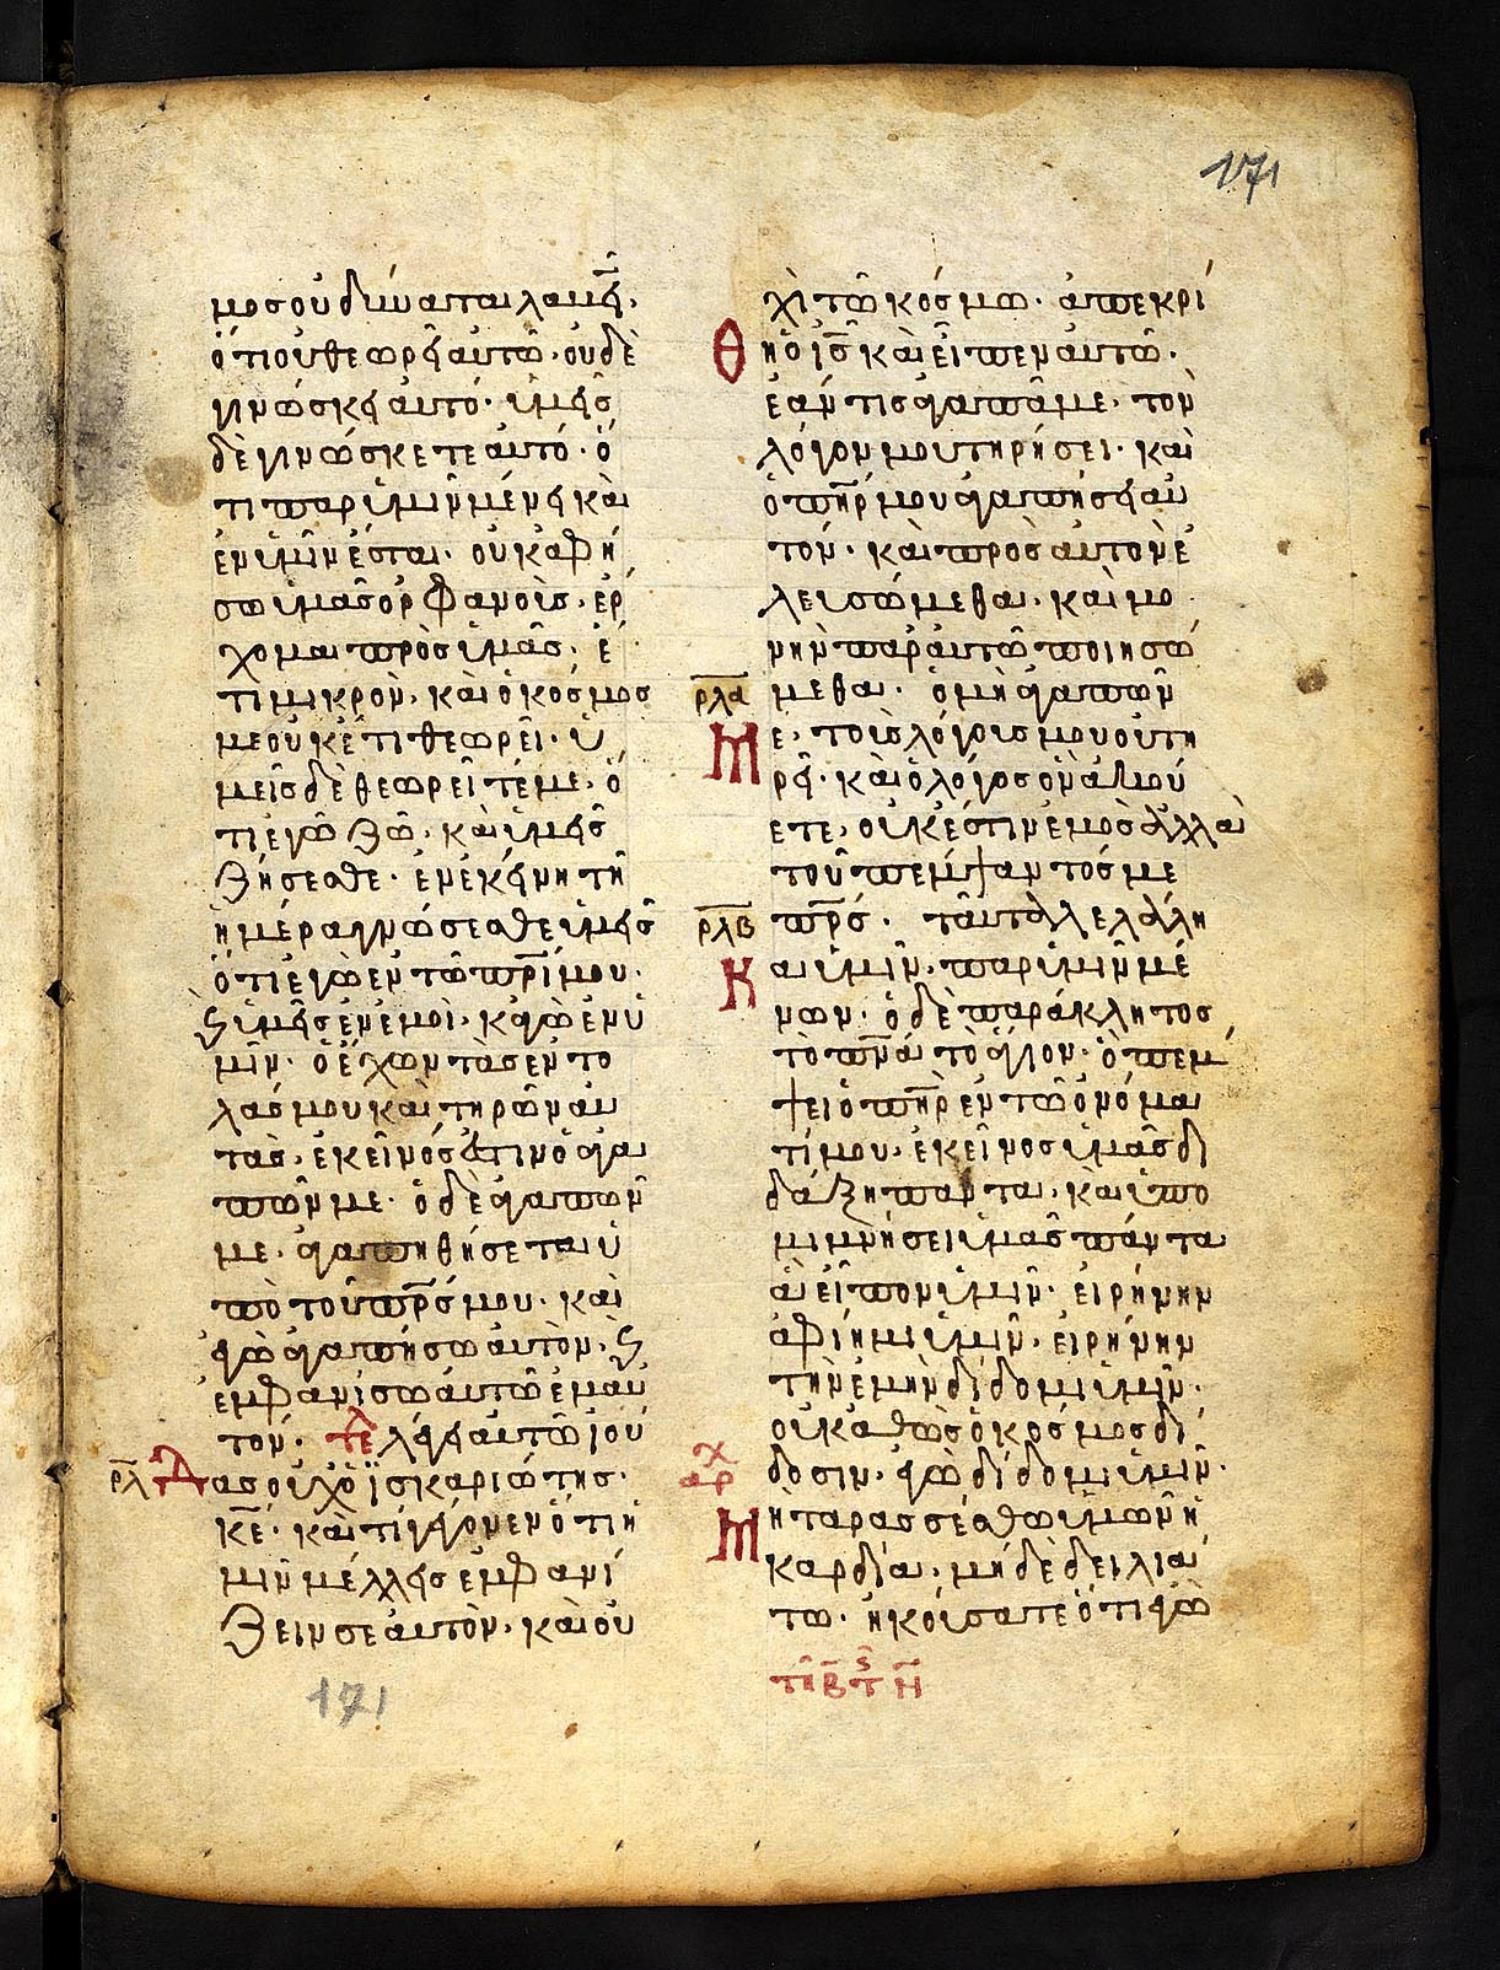 171
μοσ οὐ δύναται λαβεῖν,
ὅτι οὐ θεωρεῖ αὐτῶ· οὐδὲ
γινώσκει αὐτό· ὑμεῖσ
δὲ γινώσκετε αὐτό· ὅ
τι παρ ὑμῖν μένει καὶ
ἐν ὑμῖν ἔσται· οὐκ ἀφή
σω ὑμᾶσ ὀρφανούσ, ἔρ
χομαι πρὸσ ὑμᾶσ· ἔ
τι μικρὸν, καὶ ὁ κόσμοσ
με οὐκέτι θεωρεῖ· ὑ
μεῖσ δὲ θεωρεῖτέ με, ὅ
τι ἐγὼ ζῶ, καὶ ὑμεῖσ
ζήσεσθε· ἐν ἐκείνη τῆ
ἡμέρα γνώσεσθε ὑμεῖσ
ὅτι ἐγὼ ἐν τῶ πρ̅ι μου·
ϛ ὑμεῖσ ἐν ἐμοὶ, κἀγὼ ἐν ὑ
μῖν· ὁ ἔχων τὰσ ἐντο
λάσ μου καὶ τηρῶν αὐ
τὰσ, ἐκεῖνόσ ἐστιν ὁ ἀγα
πῶν με· ὁ δὲ ἀγαπῶν
με, ἀγαπηθήσεται ὑ
πὸ τοῦ πρ̅σ μου· καὶ
ἐγὼ ἀγαπήσω αὐτὸν, ϛ
ἐμφανίσω αὐτῶ ἐμαυ
τόν· τε λέγει αὐτῶ ἰού
ρ̅λ̅ δασ οὐχ ὁ ἰσκαριώτησ·
κ̅ε̅· καὶ τί γέγονεν ὅτι ἡ
μῖν μέλλεισ ἐμφανί
ζειν σεαυτὸν, καὶ οὐ
171
χὶ τῶ κόσμω· ἀπεκρί
Θη ὁ ι̅σ̅ καὶ εἶπεν αὐτῶ·
ἐάν τισ ἀγαπᾶ με, τὸν
λόγον μου τηρήσει· καὶ
ὁ πη̅ρ μου ἀγαπήσει αὐ
τόν· καὶ πρὸσ αὐτὸν ἐ
λευσώμεθα, καὶ μο
νὴν παρ αὐτῶ ποιησώ
ρλα μεθα· ὁ μὴ ἀγαπῶν
Με, τοὺσ λόγουσ μου οὐ τη
ρεῖ· καὶ ὁ λόγοσ ὃν ἀκού
ετε, οὐκ ἔστιν ἐμὸσ ἀλλὰ
τοῦ πέμψαντόσ με
ρλβ πρ̅σ· ταῦτα λελάλη
Και ὑμῖν, παρ ὑμῖν μέ
νων· ὁ δὲ παράκλητοσ,
τὸ πν̅α τὸ ἅγιον· ὃ πέμ
ψει ὁ πη̅ρ ἐν τῶ ὀνόμα
τί μου, ἐκεῖνοσ ὑμᾶσ δι
δάξη πάντα, καὶ ὑπο
μιμνήσει ὑμᾶσ πάντα
ἃ εἶπον ὑμῖν· εἰρήνην
ἀφίημι ὑμῖν, εἰρήνην
τὴν ἐμὴν δίδομι ὑμῖν·
οὐ καθὼσ ὁ κόσμοσ δί
αρχ δοσιν, ἐγὼ δίδομι ὑμῖν·
Μη ταρασσέσθω ὑμῶν ἡ
καρδία, μηδὲ δειλιά
τω· ἠκούσατε ὅτι ἐγὼ